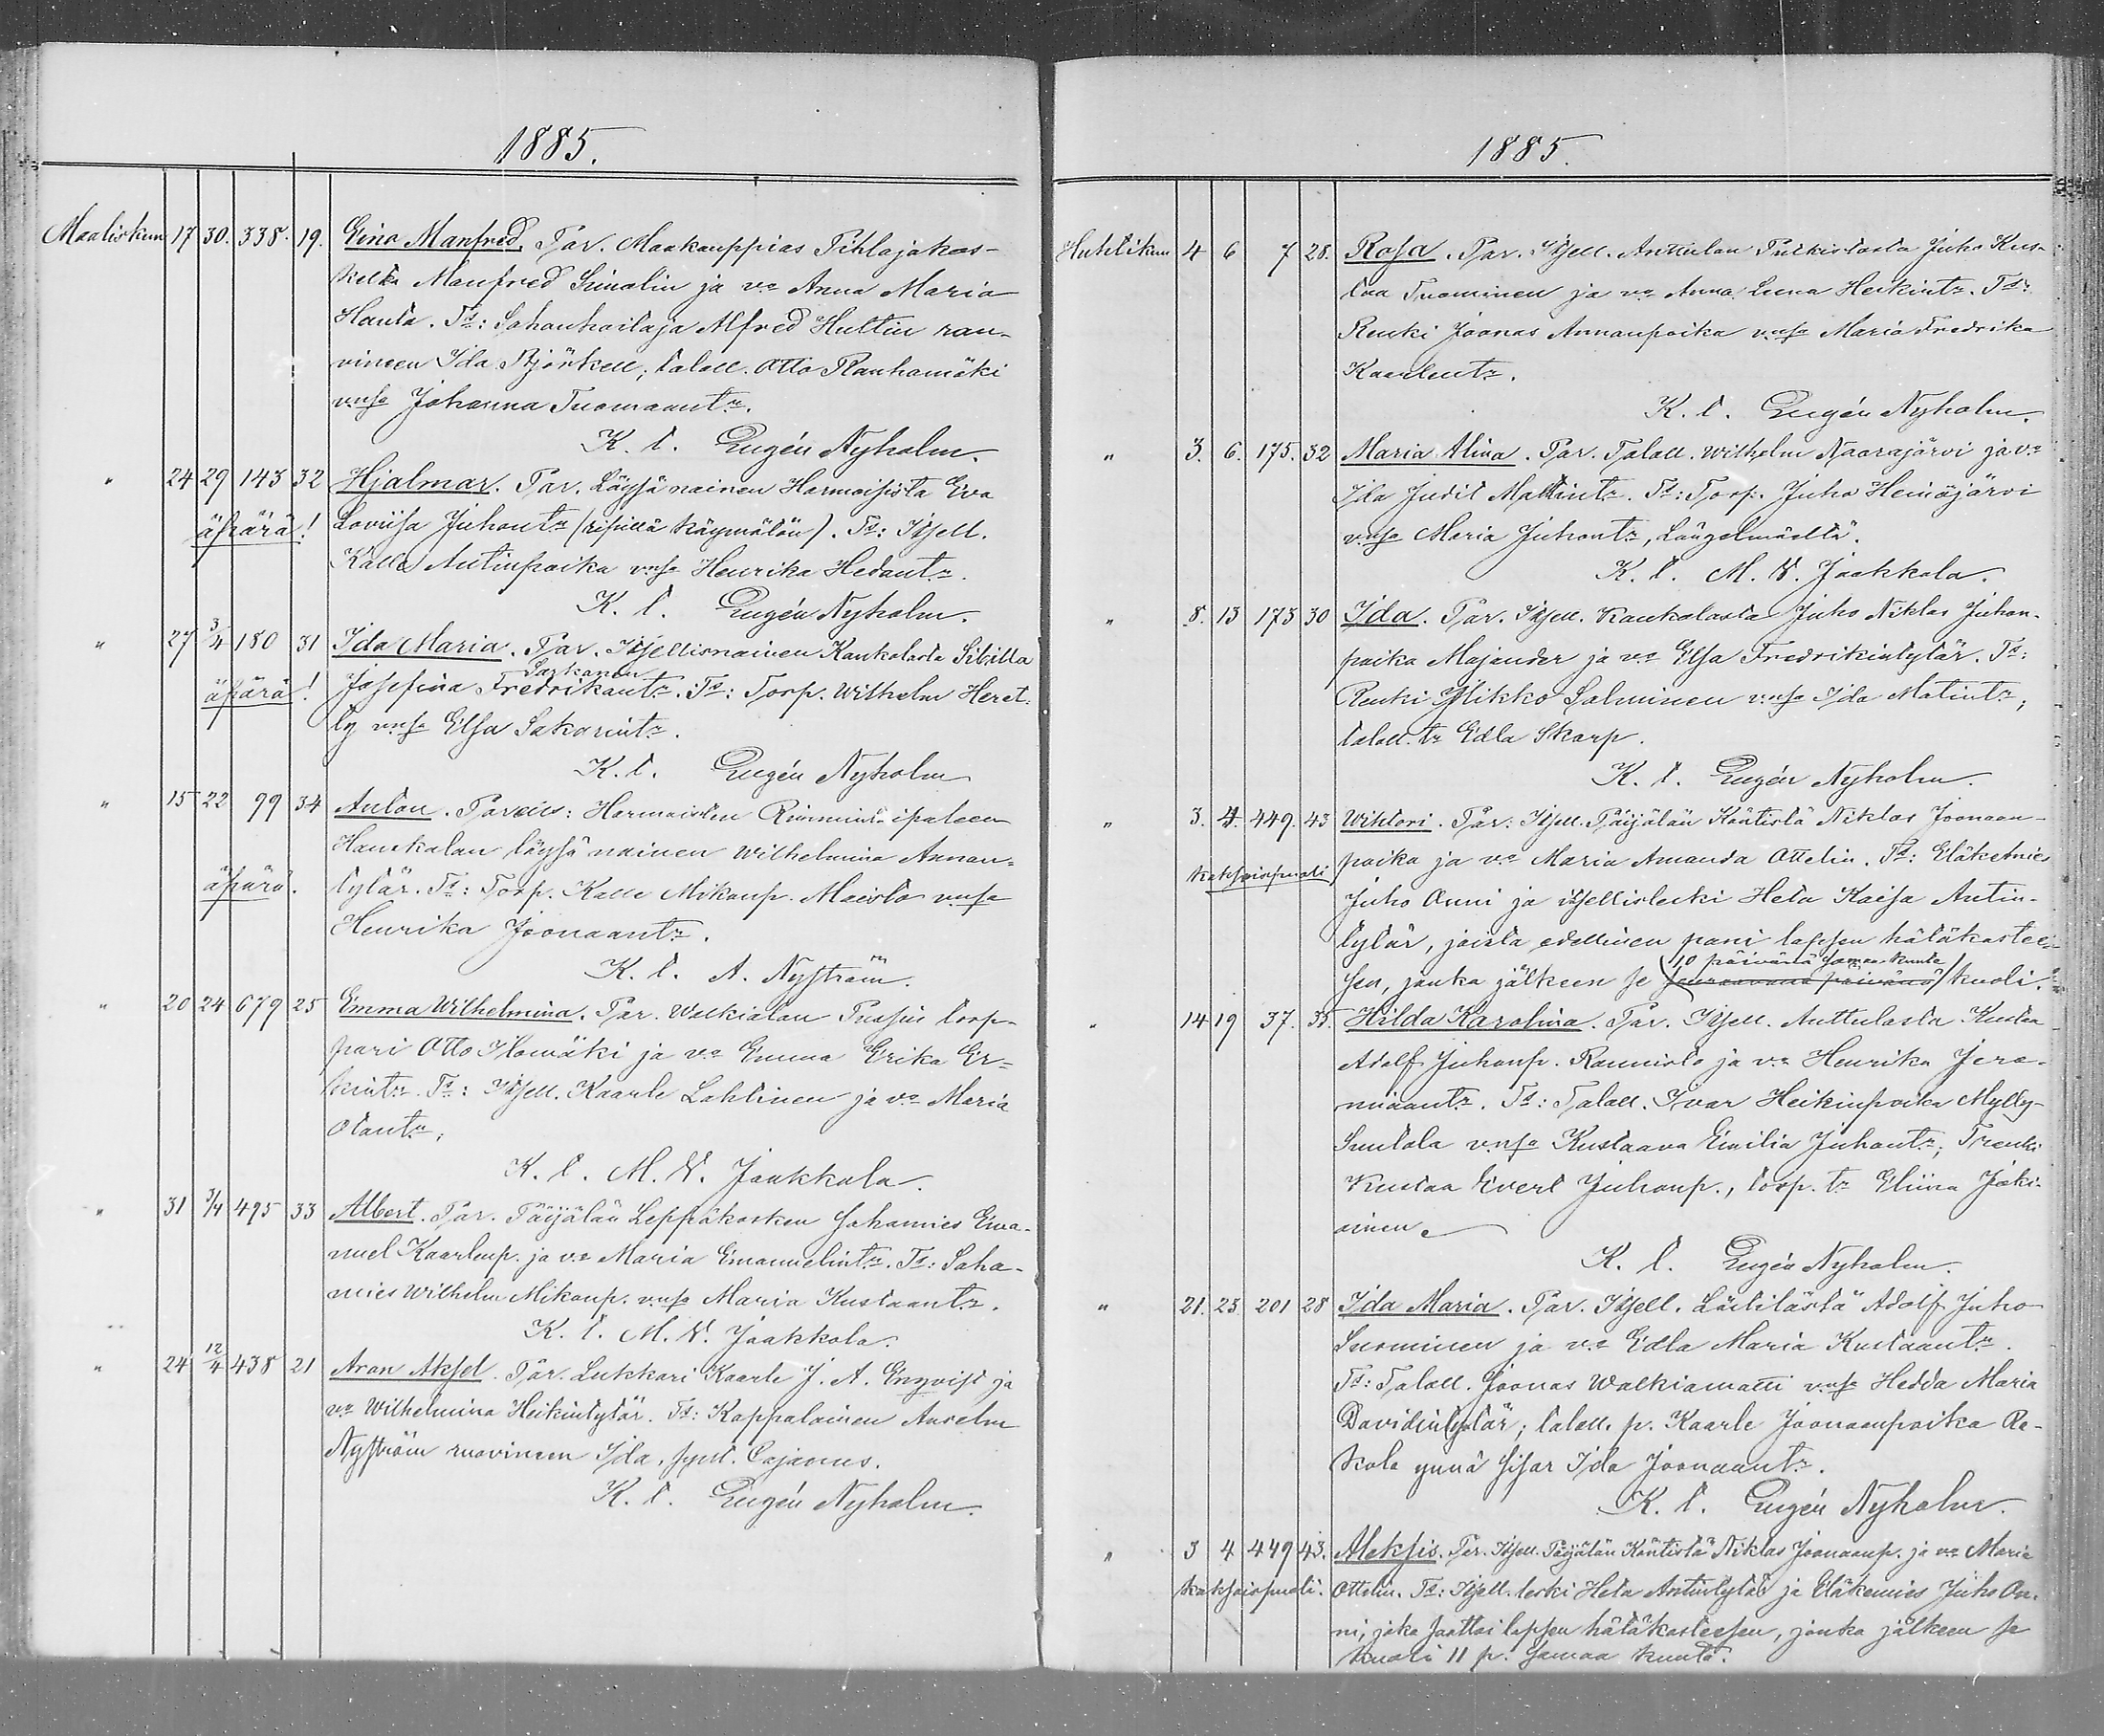 1885.
Maaliskuu 17 30. 338. 19. Eino Manfred. Var. Maakauppias Pihlajakos-
kelta Manfred Simolin ja vo Anna Maria
Hauta. Td: Sahanhoitaja Alfred Hultin rou-
vineen Ida Björkell; taloll. Otto Rauhamäki
vnsa Johanna Tuomaantr.
K. t. Eugén Nyholm.
" 24 29 143 32 Hjalmar. Var. Löysä nainen Harmoisista Eva
äpärä! Loviisa Juhontr (ripillä käymätön). Td: Itsell.
Kalle Antinpoika vnsa Henrika Hedantr.
K. t. Eugén Nyholm.
" 27 3/4 180 31 Ida Maria. Var. Itsellisnainen Kaukolasta Sibilla
Sarkanen
äpärä! Josefina Fredrikantr. Td: Torp. Wilhelm Heret-
ty vnsa Elsa Sakarintr.
K. t. Eugén Nyholm
" 15 22 99 34 Anton. Var. Harmoisten
Hauskalan löysä nainen Wilhelmina Annan-
äpärä. tytär. Td: Torp. Kalle Mikonp. Maisto vnsa
Henrika Joonaantr.
K. t. A. Nyström.
" 20 24 679 25 Emma Wilhelmina. Var. Welkialan Pussin torp-
pari Otto Ilomäki ja vo Emma Erika Er-
kintr. Td: Itsell. Kaarle Lahtinen ja vo Maria
Otantr.
K. t. M. W. Jaakkola.
" 31 3/4 495 33 Albert. Var. Päijälän Leppäkosken Sahamies Ema-
nuel Kaarlenp. ja vo Maria Emanuelintr. Td: Saha-
mies Wilhelm Mikonp. vnsa Maria Kustaantr.
K. t. M. W. Jaakkola.
" 24 12/4 438 21 Aron Aksel. Var. Lukkari Kaarle J. A. Enqvist ja
vo Wilhelmina Heikintytär. Td: Kappalainen Anselm
Nyström ruovineen Ida, synt. Cajanus.
K. t. Eugén Nyholm.
1885.
Huhtikuu 4 6 7 28. Rosa. Var. Itsell. Anttulan Pulkistasta Juho Kus-
taa Tuominen ja vo Anna Leena Heikintr. Td:
Renki Joonas Annanpoika vnsa Maria Fredrika
Kaarlentr.
K. t. Eugén Nyholm.
" 3. 6. 175. 32 Maria Alina. Var. Taloll. Wilhelm Naarajärvi ja vo
Ida Judit Mattintr. Td: Torp. Juho Heinäjärvi
vnsa Maria Juhontr, Längelmäeltä.
K. t. M. W. Jaakkola.
" 8. 13 173 30 Ida. Var. Itsell. Kaukolasta Juho Niklas Juhon-
poika Majander ja vo Elsa Fredrikintytär. Td:
Renki Mikko Salminen vnsa Ida Matintr,
taloll. tr Edla Skarp.
K. t. Eugén Nyholm.
" 3. 4. 449. 43 Wihtori. Var: Itsell. Päijälän Köntistä Niklas Joonaan-
kaksoispuoli poika ja vo Maria Amanda Ottelin. Td: Eläkemies
Juho Onni ja itsellisleski Heta Kaisa Antin-
tytär, joista edellinen pani lapsen hätäkastee-
10 päivänä samaa kuuta
sen, jonka jälkeen se seuraavana päivänä kuoli.
" 14 19 37. 35. Hilda Karolina. Var. Itsell. Anttulasta Kustaa
Adolf Juhonp. Rannisto ja vo Henrika Jere-
miaantr. Td: Taloll. Ivar Heikinpoika Mylly-
Suntola vnsa Kustaava Emilia Juhontr; Trenki
Kustaa Evert Juhonp., torp. tr Eliina Joki-
oinen.
K. t. Eugén Nyholm.
" 21. 23. 201 28 Ida Maria. Var. Itsell. Lästilästä Adolf Juho
Suominen ja vo Edla Maria Kustaantr.
Td: Taloll. Joonas Walkiamatti vnsa Hedda Maria
Davidintytär; taloll. p. Kaarle Joonaanpoika Ra-
kola ynnä sisar Ida Joonaantr.
K. t. Eugén Nyholm.
" 3 4 449 43. Aleksis. Var. Itsell. Päijälän Köntistä Niklas Joonaanp. ja vo Maria
kaksoispuoli. Ottelin. Td: Itsell. leski Heta Antintytär ja Eläkemies Juho On-
ni, joka saattoi lapsen hätäkasteesen, jonka jälkeen se
kuoli 11 p. samaa kuuta.